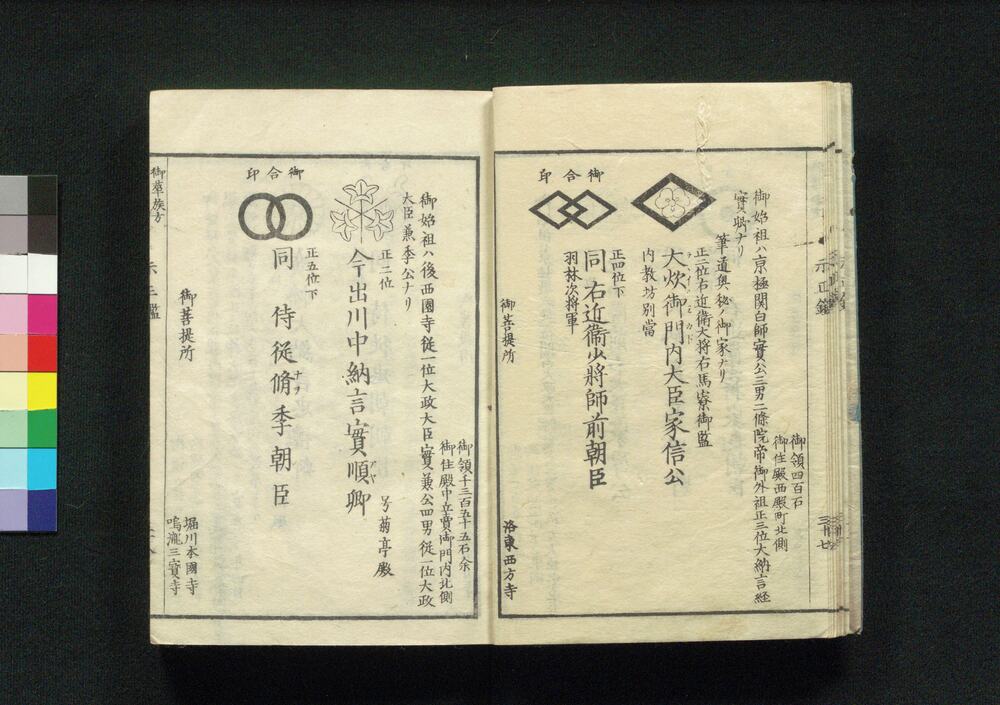 御領四百石
御住殿西殿町北側
御始祖ハ京極関白師實公三男二條院帝御外祖正三位大納言経
實卿ナリ
筆道奥秘ノ御家ナリ
正二位右近衛大将右馬寮御監
大炊御門内大臣家信公
内教坊別當
御合印
正四位下
同右近衛少將師前朝臣
羽林次将軍
御菩提所
洛東西方寺
御領千三百五十五石余
御住殿中立賣御門内北側
御始祖ハ後西園寺従一位大政大臣實兼公四男従一位大政
大臣兼季公ナリ
正二位
今出川中納言實順卿
アヤ
号菊亭殿
御合印
正五位下
同侍従脩季朝臣
ナヲ
御菩提所
堀川本國寺
鳴瀧三寳寺
御華族方